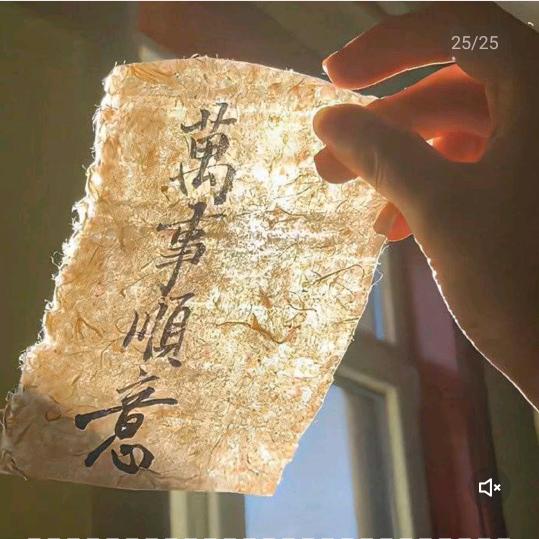 25/25
萬事順意